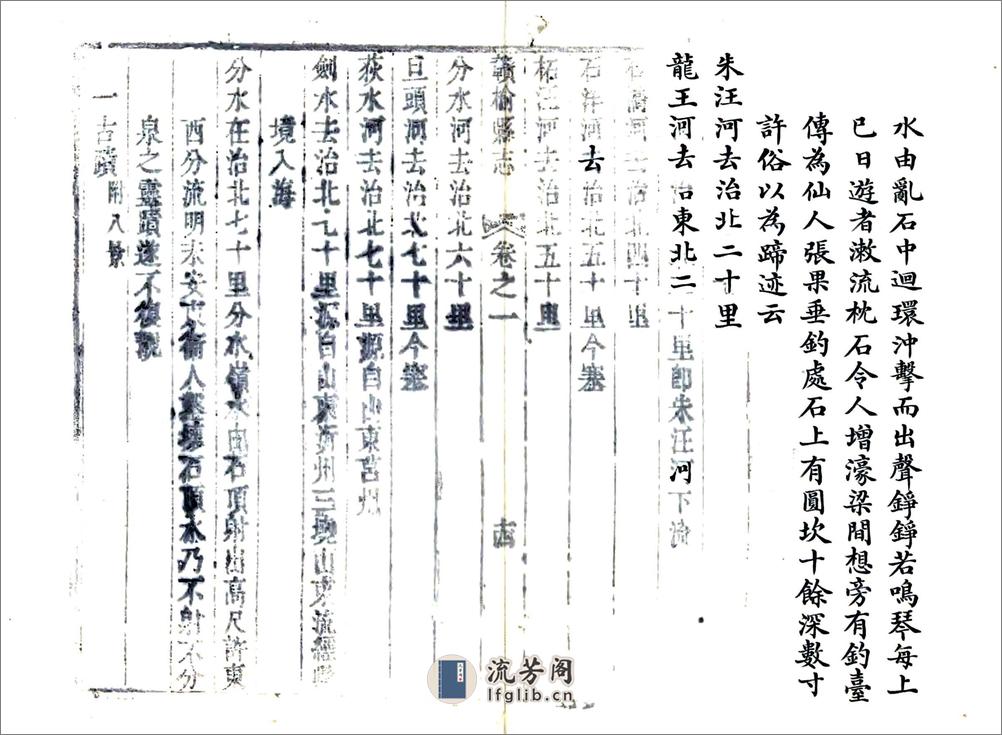 水由亂石中迴環沖擊而出聲錚錚若鳴琴每上
巳日遊者漱流枕石令人增濠梁間想旁有釣臺
傳為仙人張果垂釣處石上有圓坎十餘深數寸
許俗以為蹄迹云
朱汪河去治北二十里
龍王河去治東北二十里即朱汪河下流
河去治北四十里
石洋河去治北五十里今塞
柘汪河去治北五十里
贛榆縣志 卷之一 十四
分水河去治北六十里
旦頭河去治北七十里今塞
荻水河去治北七十里源自山東莒州
劍水去治北七十里源自山東沂州三山東流經
境入海
分水在治北七十里分水嶺水由石頂射出高尺許東
西分流明末安東衛人鑿壞石頂水乃不射不分
泉之靈蹟遂不復覩
一古蹟 附八景
流芳阁
lfglib.cn